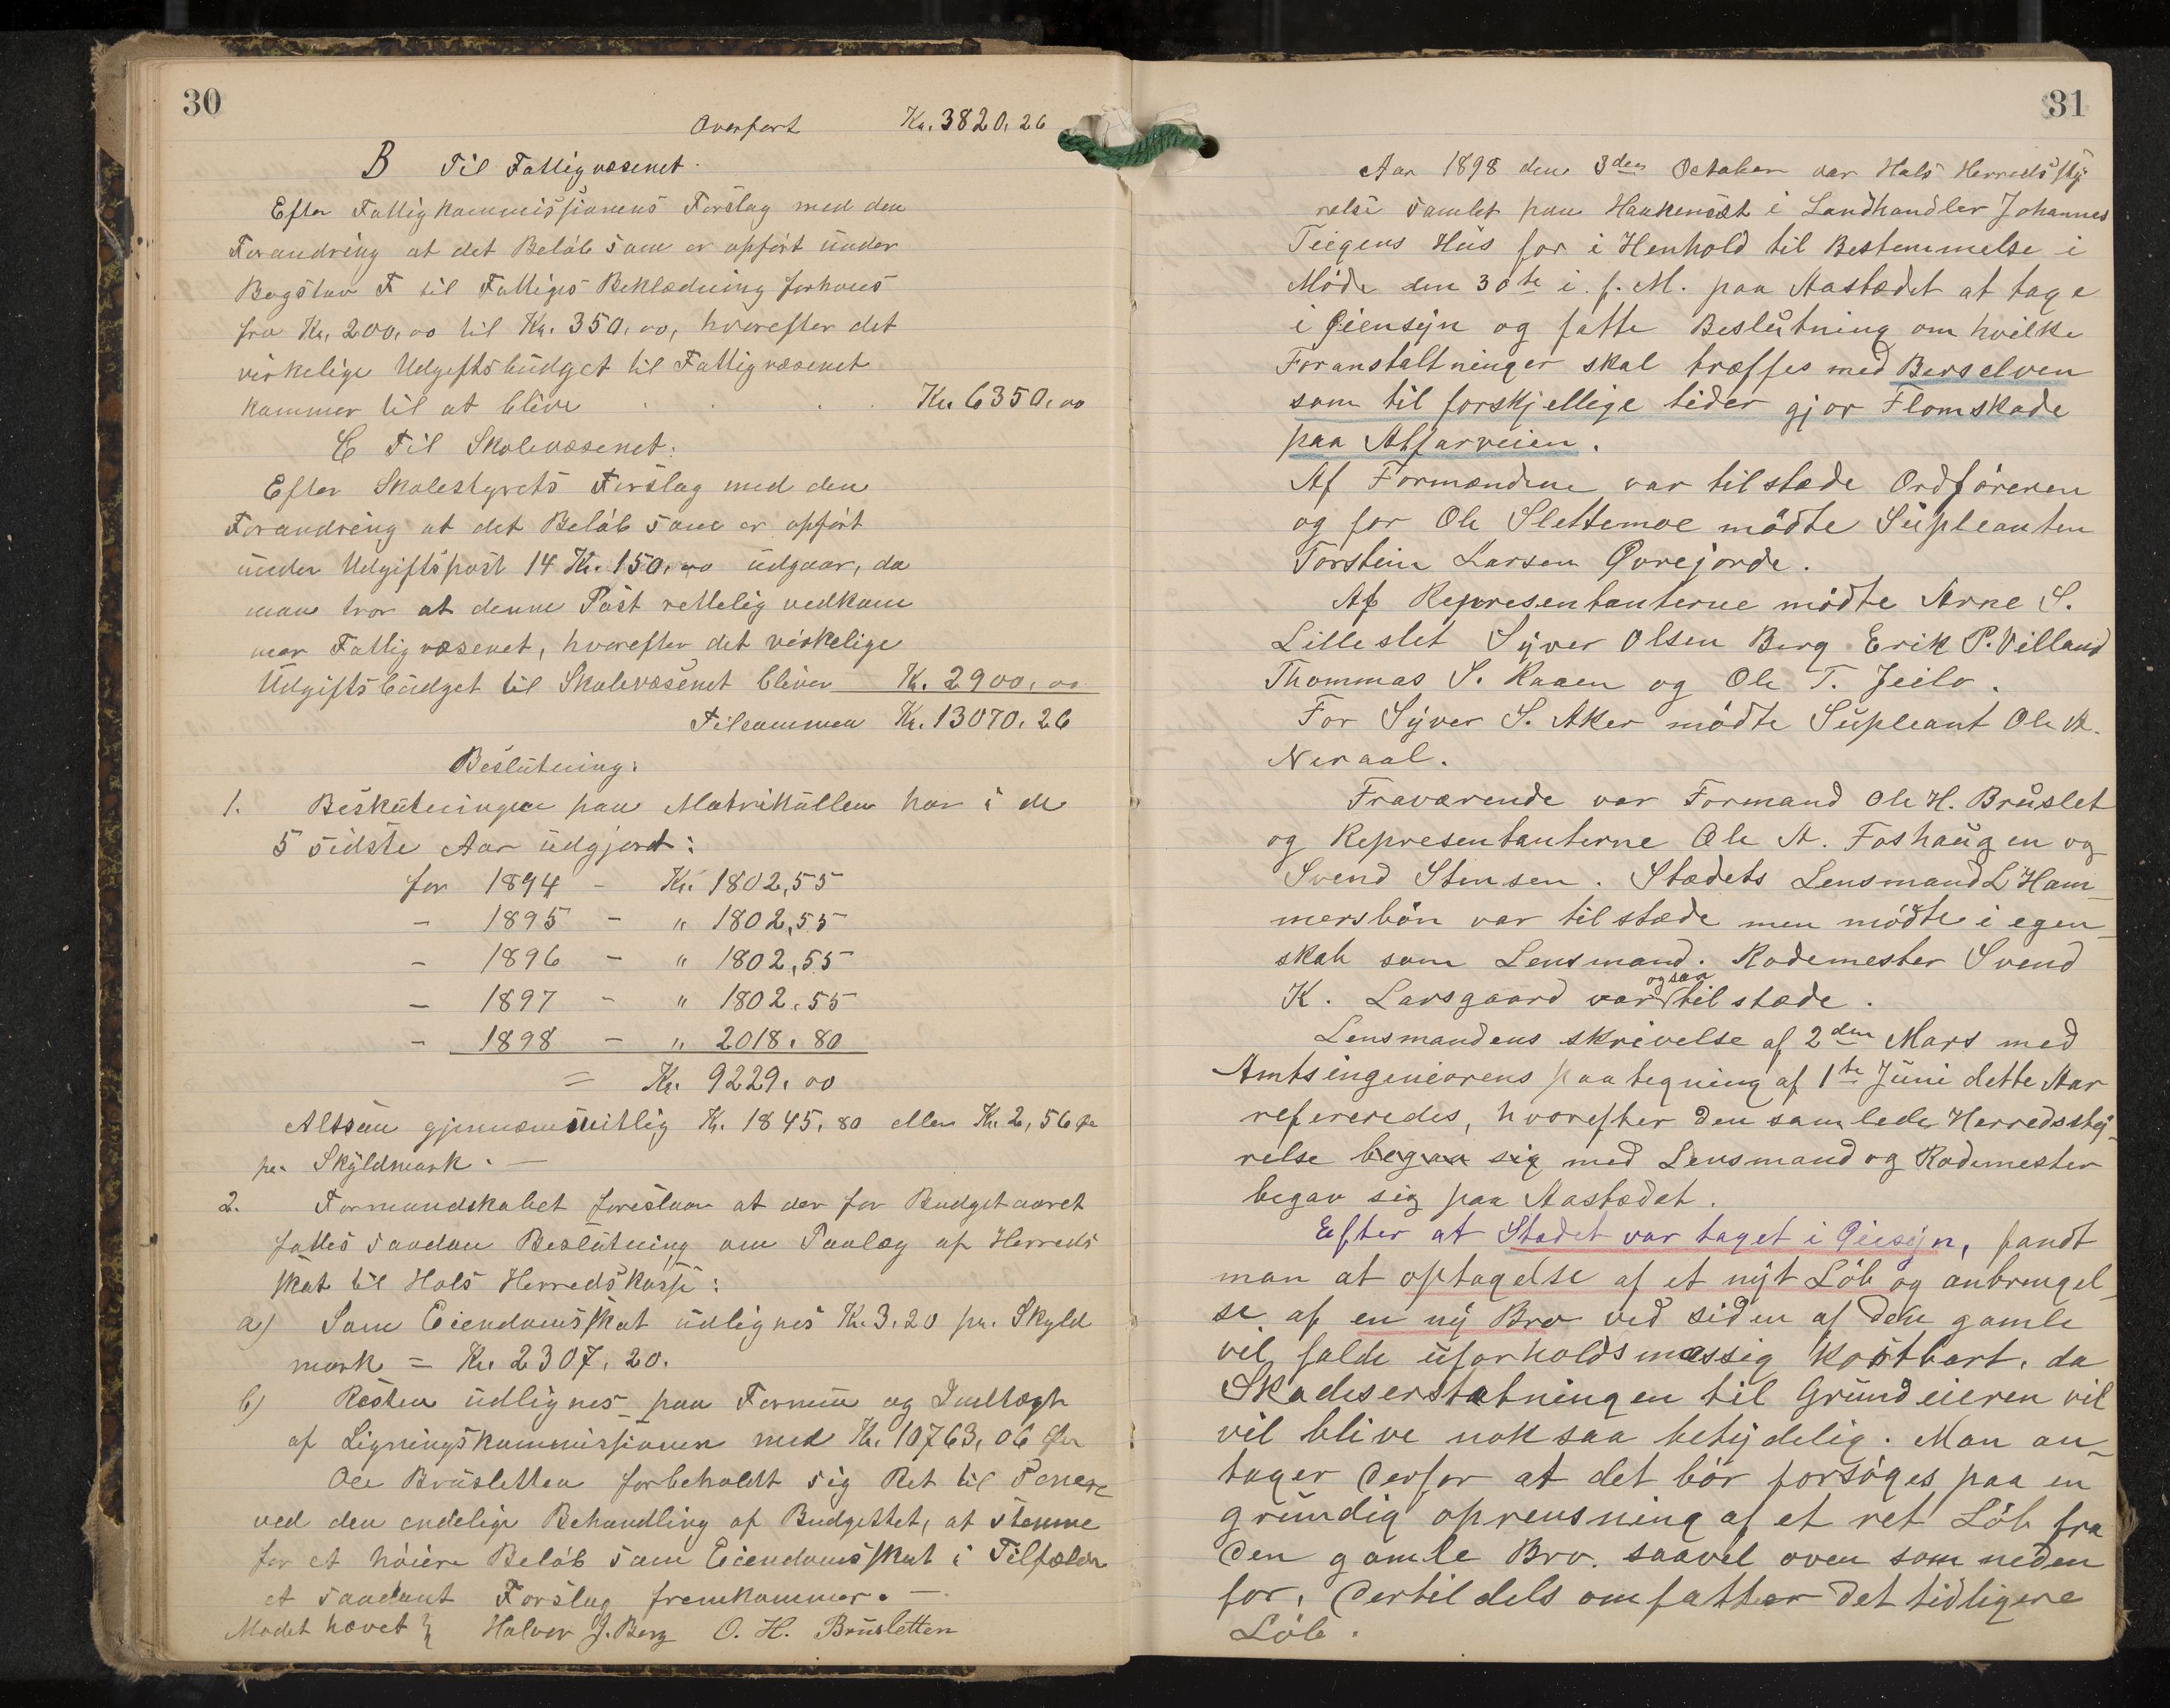 30
Overført Kr. 3820,26
B Til Fattigvæsenet.
Efter Fattigkommissionens Forslag med den
Forandring at det Beløb som er opført under
Bogstav F til Fattiges Beklædning forhøies
fra Kr. 200,00 til Kr. 350,00, hvorefter det
virkelige Udgiftsbudget til Fattigvæsenet
kommer til at blive . . . . Kr. 6350,00
C Til Skolevæsenet.
Efter Skolestyrets Forslag med den
Forandring at det Beløb som er opført
under Udgiftspost 14 Kr. 150,00 udgaar, da
man tror at denne Post rettelig vedkom
mer Fattigvæsenet, hvorefter det virkelige
Udgiftsbudget til Skolevæsenet bliver Kr. 2900,00
Tilsammen Kr. 13070,26
Beslutning:
1. Beskatningen paa Matrikullen har i de
5 sidste Aar udgjort:
for 1894 - Kr. 1802,55
- 1895 - " 1802,55
- 1896 - " 1802,55
- 1897 - " 1802,55
- 1898 - " 2018,80
= Kr. 9229,00
Altsaa gjennemsnitlig Kr. 1845,80 eller Kr. 2,56
pr. Skyldmark. —
2. Formandskabet foreslaar at der for Budgetaaret
fattes saadan Beslutning om Paalæg af Herreds
skat til Hols Herredskasse:
a) Som Eiendomsskat udlignes Kr. 3,20 pr. Skyld
mark = Kr. 2307,20.
b) Resten udlignes paa Formue og Indtægt
af Ligningskommissionen med Kr. 10763,06
Ole Brusletten forbeholdt sig Ret til senere
ved den endelige Behandling af Budgettet, at stemme
for et høiere Beløb som Eiendomsskat i Tilfælde
et saadant Forslag fremkommer. —
Mødet hævet } Halvor J. Berg O. H. Brusletten
31
Aar 1898 den 3den October var Hols Herredssty
relse samlet paa Haakenset i Landhandler Johannes
Teigens Hus for i Henhold til Bestemmelse i
Møde den 30te i f. M. paa Aastædet at tage
i Øiensyn og fatte Beslutning om hvilke
Foranstaltninger skal træffes med Berselven
som til forskjellige tider gjør Flomskade
paa Alfarveien.
Af Formændene var tilstæde Ordføreren
og for Ole Slettemoe mødte Supleanten
Torstein Larsen Øvrejorde.
Af Representanterne mødte Arne S.
Lilleslet Syver Olsen Berg Erik P. Villand
Thommas S. Raaen og Ole T. Jeilo.
For Syver S. Aker mødte Supleant Ole A.
Neraal.
Fraværende var Formand Ole H. Bruslet
og Representanterne Ole A. Foshaugen og
Svend Stensen. Stædets Lensmand L Ham-
mersbøn var tilstæde men mødte i egen-
skab som Lensmand. Rodemester Svend
K. Larsgaard var ogsaa tilstæde.
Lensmandens skrivelse af 2den Mars med
Amtsingeniørens paategning af 1te Juni dette Aar
refereredes, hvorefter den samlede Herredssty-
relse begaa sig med Lensmand og Rodemester
begav sig paa Aastædet.
Efter at Stædet var taget i Øiesyn, fandt
man at optagelse af et nyt Løb og anbringel-
se af en ny Bro ved siden af den gamle
vil falde uforholdsmæssig kostbart, da
Skadeserstatningen til Grundeieren vil
vil blive noksaa betydelig. Man an-
tager derfor at det bør forsøges paa en
grundig oprensning af et ret Løb fra
den gamle Bro. saavel oven som neden
for, dertil dels omfatter det tidligere
Løb.